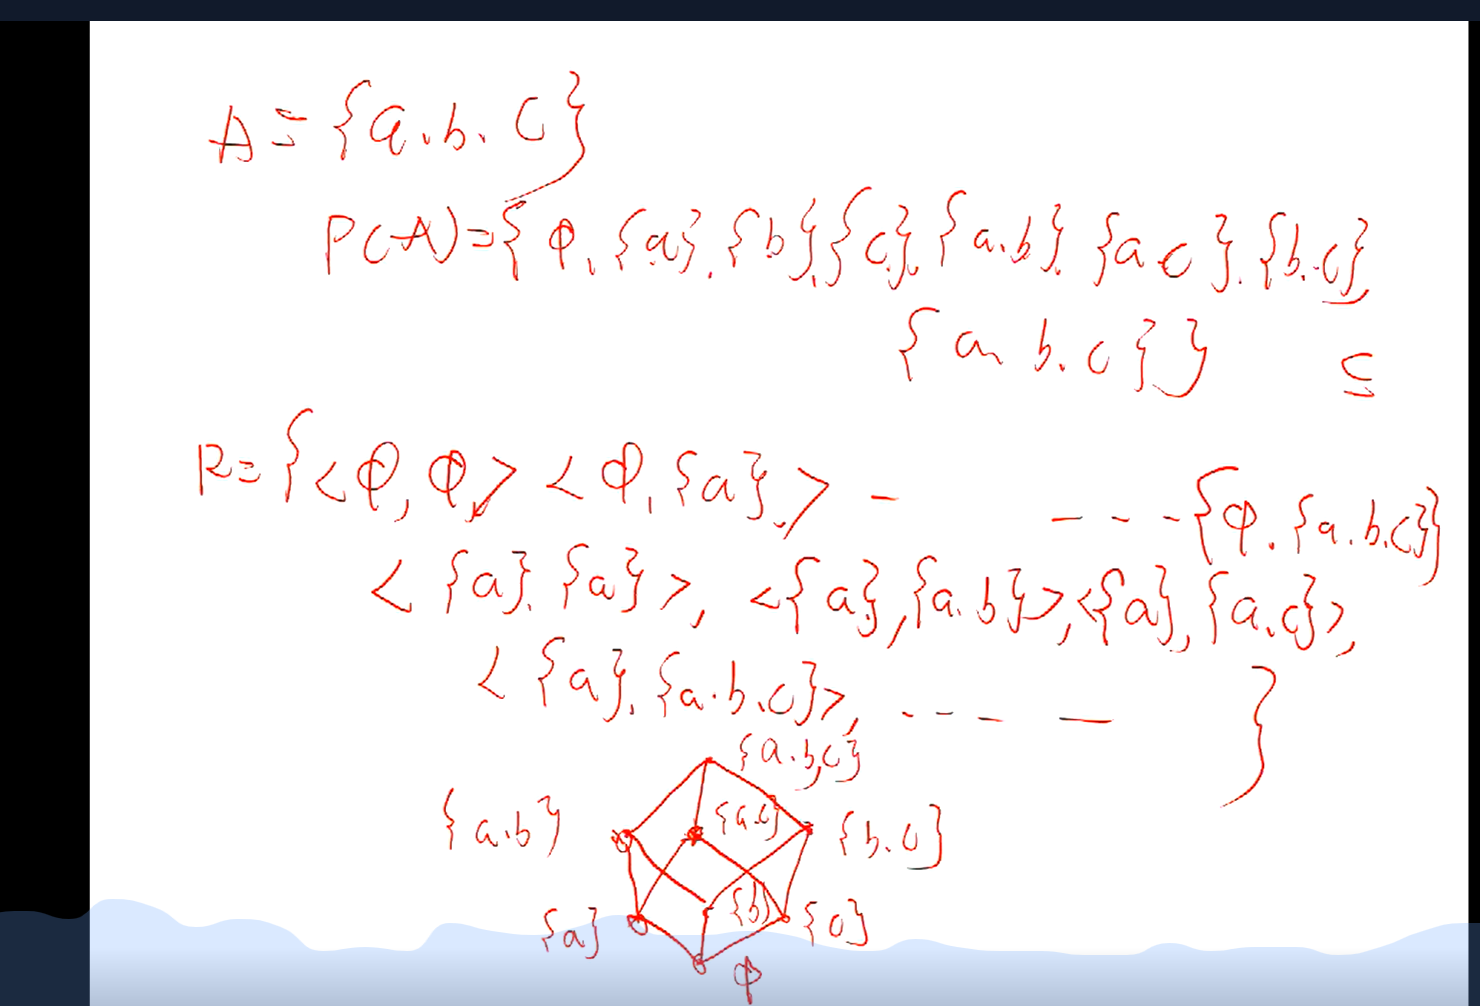 A={a.b.c}
P(A)={φ,{a},{b},{c},{a.b},{a.c},{b.c},
{a,b.c}} ⊆
R={<φ,φ><φ,{a}>- ---{φ.{a.b.c}}
<{a},{a}>,<{a},{a.b}>,<{a},{a.c}>,
<{a},{a.b.c}>,---- — }
{a.b,c}
{a.b} {a.c} {b.c}
{a} {b} {c}
φ